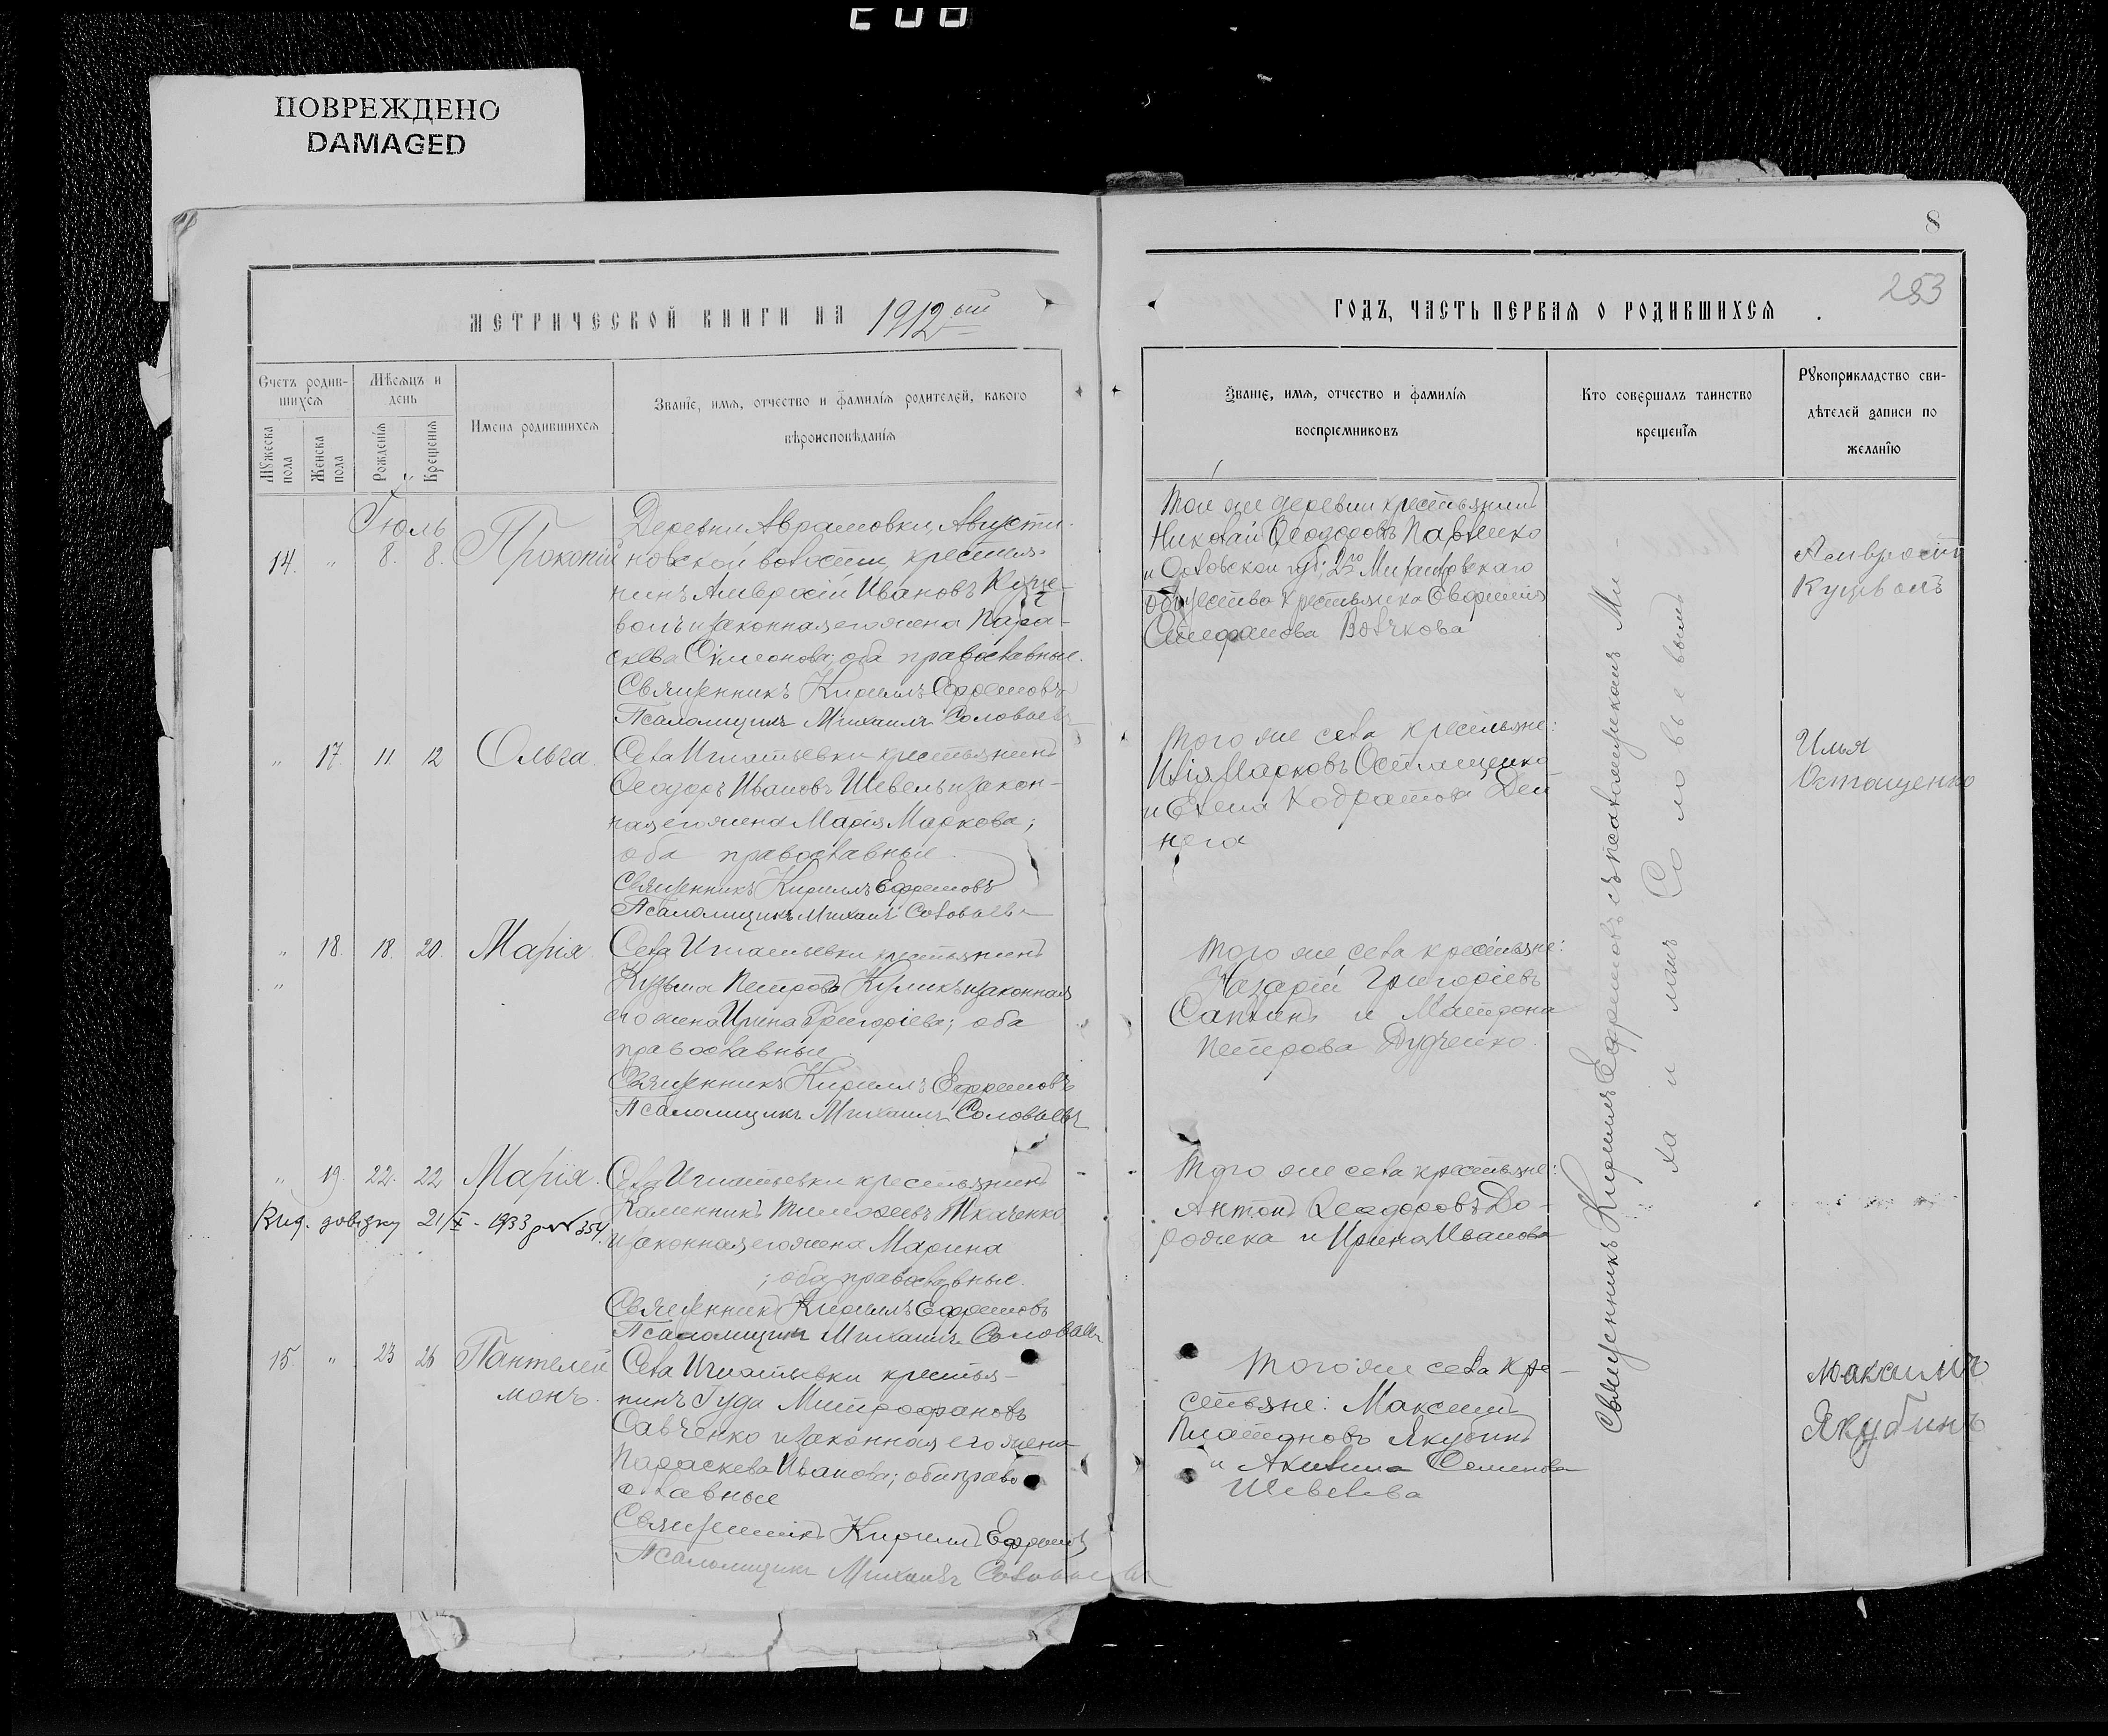 ПОВРЕЖДЕНО
DAMAGED
8
253
МЕТРИЧЕСКОЙ КНИГИ НА 1912ый
ГОДЪ, ЧАСТЬ ПЕРВАЯ О РОДИВШИХСЯ
Счетъ родив-
шихся
Мужеска
пола
Женска
пола
Мѣсяцъ и
день
Рожденія
Крещенія
Имена родившихся
Званіе, имя, отчество и фамилія родителей, какого
вѣроисповѣданія
Званіе, имя, отчество и фамилія
воспріемниковъ
Кто совершалъ таинство
крещенія
Рукоприкладство сви-
дѣтелей записи по
желанію
Іюль
14. " 8. 8. Прокопій
Деревни Аврамовки, Августи-
новской волости, крестья-
нинъ Амвросій Ивановъ Куце-
волъ и законная его жена Пара-
скева Симеонова; оба православные.
Священникъ Кириллъ Ефремовъ
Псаломщикъ Михаилъ Соловьевъ
Той же деревни крестьянинъ
Николай Ѳеодоровъ Павленко
общества крестьянка Евфимія
Стефанова Волчкова
Амвросій
Куцволъ
" 17. 11 12 Ольга.
Села Игнатьевки крестьянинъ
Ѳеодоръ Ивановъ Шевель и закон-
ная его жена Марія Маркова;
оба православные.
Священникъ Кириллъ Ефремовъ
Псаломщикъ Михаилъ Соловьевъ
Того же села крестьяне:
Илія Марковъ Остащенко
и Елена Кодратова Деи
нега
Илья
Остащенко
" 18. 18. 20. Марія.
"
Села Игнатьевки крестьянинъ
Кузьма Петровъ Куликъ и законная
его жена Ирина Григоріева; оба
православные
Священникъ Кириллъ Ефремовъ
Псаломщикъ Михаилъ Соловьевъ
Того же села крестьяне:
Назарій Григоріевъ
Саплинъ и Матрона
Петрова Дудченко.
" 19. 22. 22 Марія.
Вид. довідку 21/X - 1933 354.
Села Игнатьевки крестьянинъ
Каленникъ Тимоѳеевъ Ткаченко
и законная его жена Марина
; оба православные.
Священникъ Кириллъ Ефремовъ
Псаломщикъ Михаилъ Соловьевъ
Того же села крестьяне:
Антонъ Ѳеодоровъ До-
рожка и Ирина Иванова
15. " 23 26 Пантелей
монъ.
Села Игнатьевки крестья-
нинъ Іуда Митрофановъ
Савченко и законная его жена
Параскева Иванова; оба право
славные
Священникъ Кириллъ Ефремовъ
Псаломщикъ Михаилъ Соловьевъ
Того же села кре-
стьяне: Максимъ
Платоновъ Якубинъ
и Акилина Семенова
Шевелева
Максимъ
Якубинъ
Священникъ Кириллъ Ефремовъ съ псаломщикомъ Ми-
хаиломъ Соловьевымъ